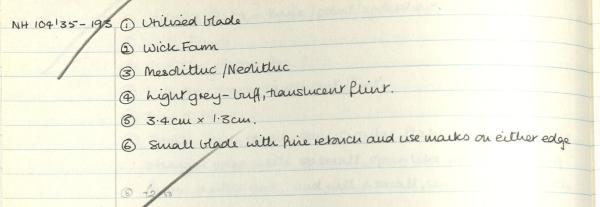 NH 104'35-193 ① Utilised blade
② Wick Farm
③ Mesolithic / Neolithic
④ Light grey-buff, translucent flint.
⑤ 3.4cm x 1.3cm.
⑥ Small blade with fine retouch and use marks on either edge